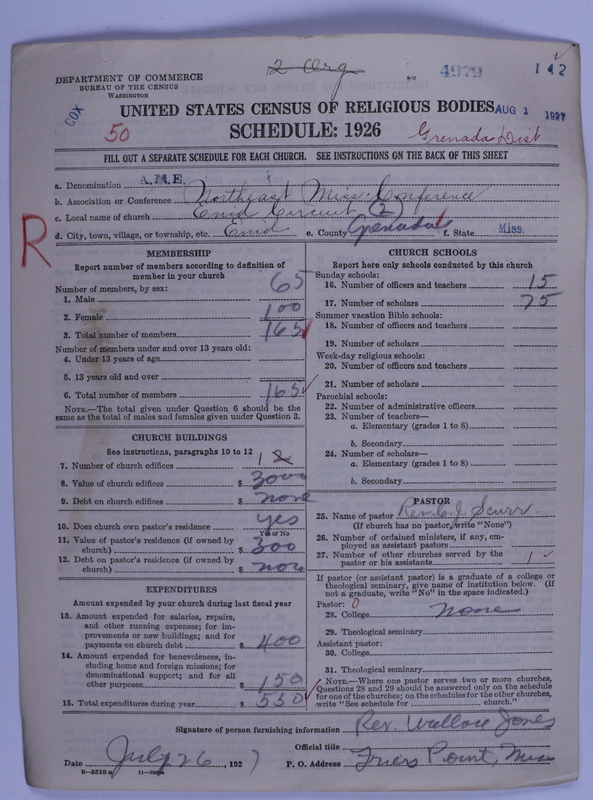 2 Org
4979
142
DEPARTMENT OF COMMERCE
BUREAU OF THE CENSUS
WASHINGTON
COX
50
UNITED STATES CENSUS OF RELIGIOUS BODIES
AUG 1 1927
SCHEDULE: 1926
Grenada Dist
FILL OUT A SEPARATE SCHEDULE FOR EACH CHURCH. SEE INSTRUCTIONS ON THE BACK OF THIS SHEET
R
a. Denomination A.M.E.
b. Association or Conference Northeast Miss. Conference
c. Local name of church Enid Circuit (2)
d. City, town, village, or township, etc. Enid e. County Grenada f. State Miss.
MEMBERSHIP
Report number of members according to definition of
member in your church
Number of members, by sex:
1. Male 65
2. Female 100
3. Total number of members 165
Number of members under and over 13 years old:
4. Under 13 years of age
5. 13 years old and over
6. Total number of members 165
NOTE.—The total given under Question 6 should be
same as the total of males and females given under Question 3.
CHURCH BUILDINGS
See instructions, paragraphs 10 to 12
7. Number of church edifices 1 2
8. Value of church edifices $ 3000
9. Debt on church edifices $ none
10. Does church own pastor's residence yes
Yes or No
11. Value of pastor's residence (if owned by
church) $ 300
12. Debt on pastor's residence (if owned by
church) $ non
EXPENDITURES
Amount expended by your church during last fiscal year
13. Amount expended for salaries, repairs,
and other running expenses; for im-
provements or new buildings; and for
payments on church debt $ 400
14. Amount expended for benevolences, in-
cluding home and foreign missions; for
denominational support; and for all
other purposes $ 150
15. Total expenditures during year $ 550
CHURCH SCHOOLS
Report here only schools conducted by this church
Sunday schools:
16. Number of officers and teachers 15
17. Number of scholars 75
Summer vacation Bible schools:
18. Number of officers and teachers
19. Number of scholars
Week-day religious schools:
20. Number of officers and teachers
21. Number of scholars
Parochial schools:
22. Number of administrative officers
23. Number of teachers—
a. Elementary (grades 1 to 8)
b. Secondary
24. Number of scholars—
a. Elementary (grades 1 to 8)
b. Secondary
PASTOR
25. Name of pastor Rev. C. J. Scurr
(If church has no pastor, write "None")
26. Number of ordained ministers, if any, em-
ployed as assistant pastors
27. Number of other churches served by the
pastor or his assistants 1
If pastor (or assistant pastor) is a graduate of a college or
theological seminary, give name of institution below. (If
not a graduate, write "No" in the space indicated.)
Pastor: 0
28. College none
29. Theological seminary
Assistant pastor:
30. College
31. Theological seminary
NOTE.—Where one pastor serves two or more churches,
Questions 28 and 29 should be answered only on the schedule
for one of the churches; on the schedules for the other churches,
write "See schedule for church."
Signature of person furnishing information Rev. Wallace Jones
Official title
Date July 26, 1927 P. O. Address Friers Point, Miss
8—5518a